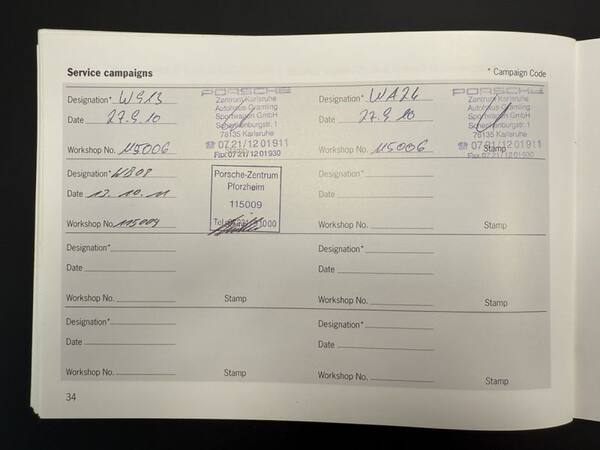 Service campaigns
* Campaign Code
Designation* W913
Date 27.9.10
Workshop No. 115006
PORSCHE
Zentrum Karlsruhe
Autohaus Gramling
Sportwagen GmbH
Schoemperlenstr. 1
76135 Karlsruhe
☎ 07 21/12 01 911
Fax 07 21/12 01 930
Designation* WA24
Date 27.9.10
Workshop No. 115006
Stamp
PORSCHE
Zentrum Karlsruhe
Autohaus Gramling
Sportwagen GmbH
76135 Karlsruhe
☎ 07 21/12 01 911
Fax 07 21/12 01 930
Designation* WB08
Date 13.10.11
Workshop No. 115009
Porsche-Zentrum
Pforzheim
115009
Designation*
Date
Workshop No.
Stamp
Designation*
Date
Workshop No.
Stamp
Designation*
Date
Workshop No.
Stamp
Designation*
Date
Workshop No.
Stamp
Designation*
Date
Workshop No.
Stamp
34